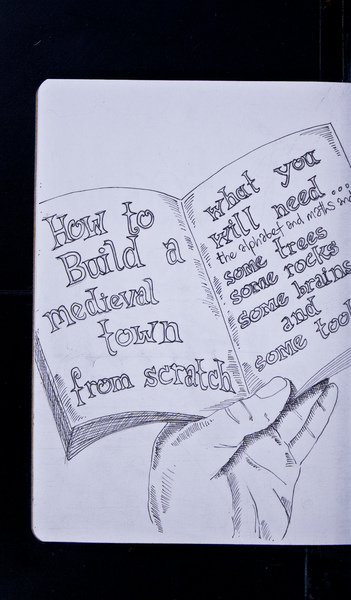 How to
Build a
medieval
town
from scratch
what you
will need...
the alphabet and maths and
some trees
some rocks
some brains
and
some tool